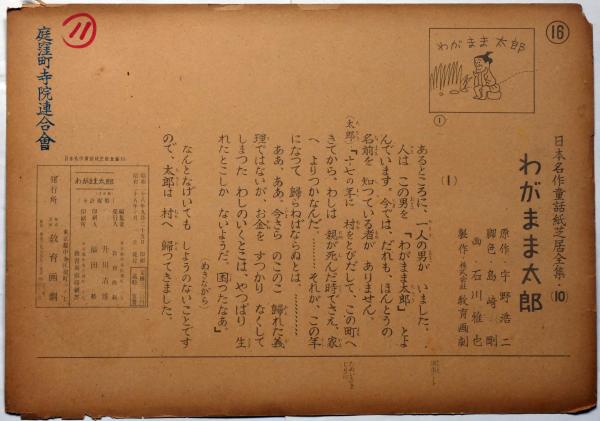 16
わがまま太郎
1
日本名作童話紙芝居全集・(10)
わがまま太郎
原作・宇野浩二
脚色・島崎 剛
画・石川雅也
製作・株式会社教育画劇
(1)
あるところに、一人の男が いました。
人は この男を 「わがまま太郎」 とよ
んでいます。今では、だれも、ほんとうの
名前を 知っている者が ありません。
(太郎)「十七の年に 村をとびだして、この町へ
きてから、わしは 親が死んだ時でさえ、家
へ よりつかなんだ。……それが、この年
になって 帰らねばならぬとは………
ああ、ああ。今さら のこのこ 帰れた義
理ではないが、お金を すっかり なくして
しまった わしのいくとこは、やっぱり 生
れたとこしか ないようだ。困ったなあ。」
(ぬきながら)
なんとなげいても しょうのないことです
ので、太郎は 村へ 帰ってきました。
ためいきまじりに
わがまま太郎
発行所
教育画劇
庭窪町寺院連合會
11